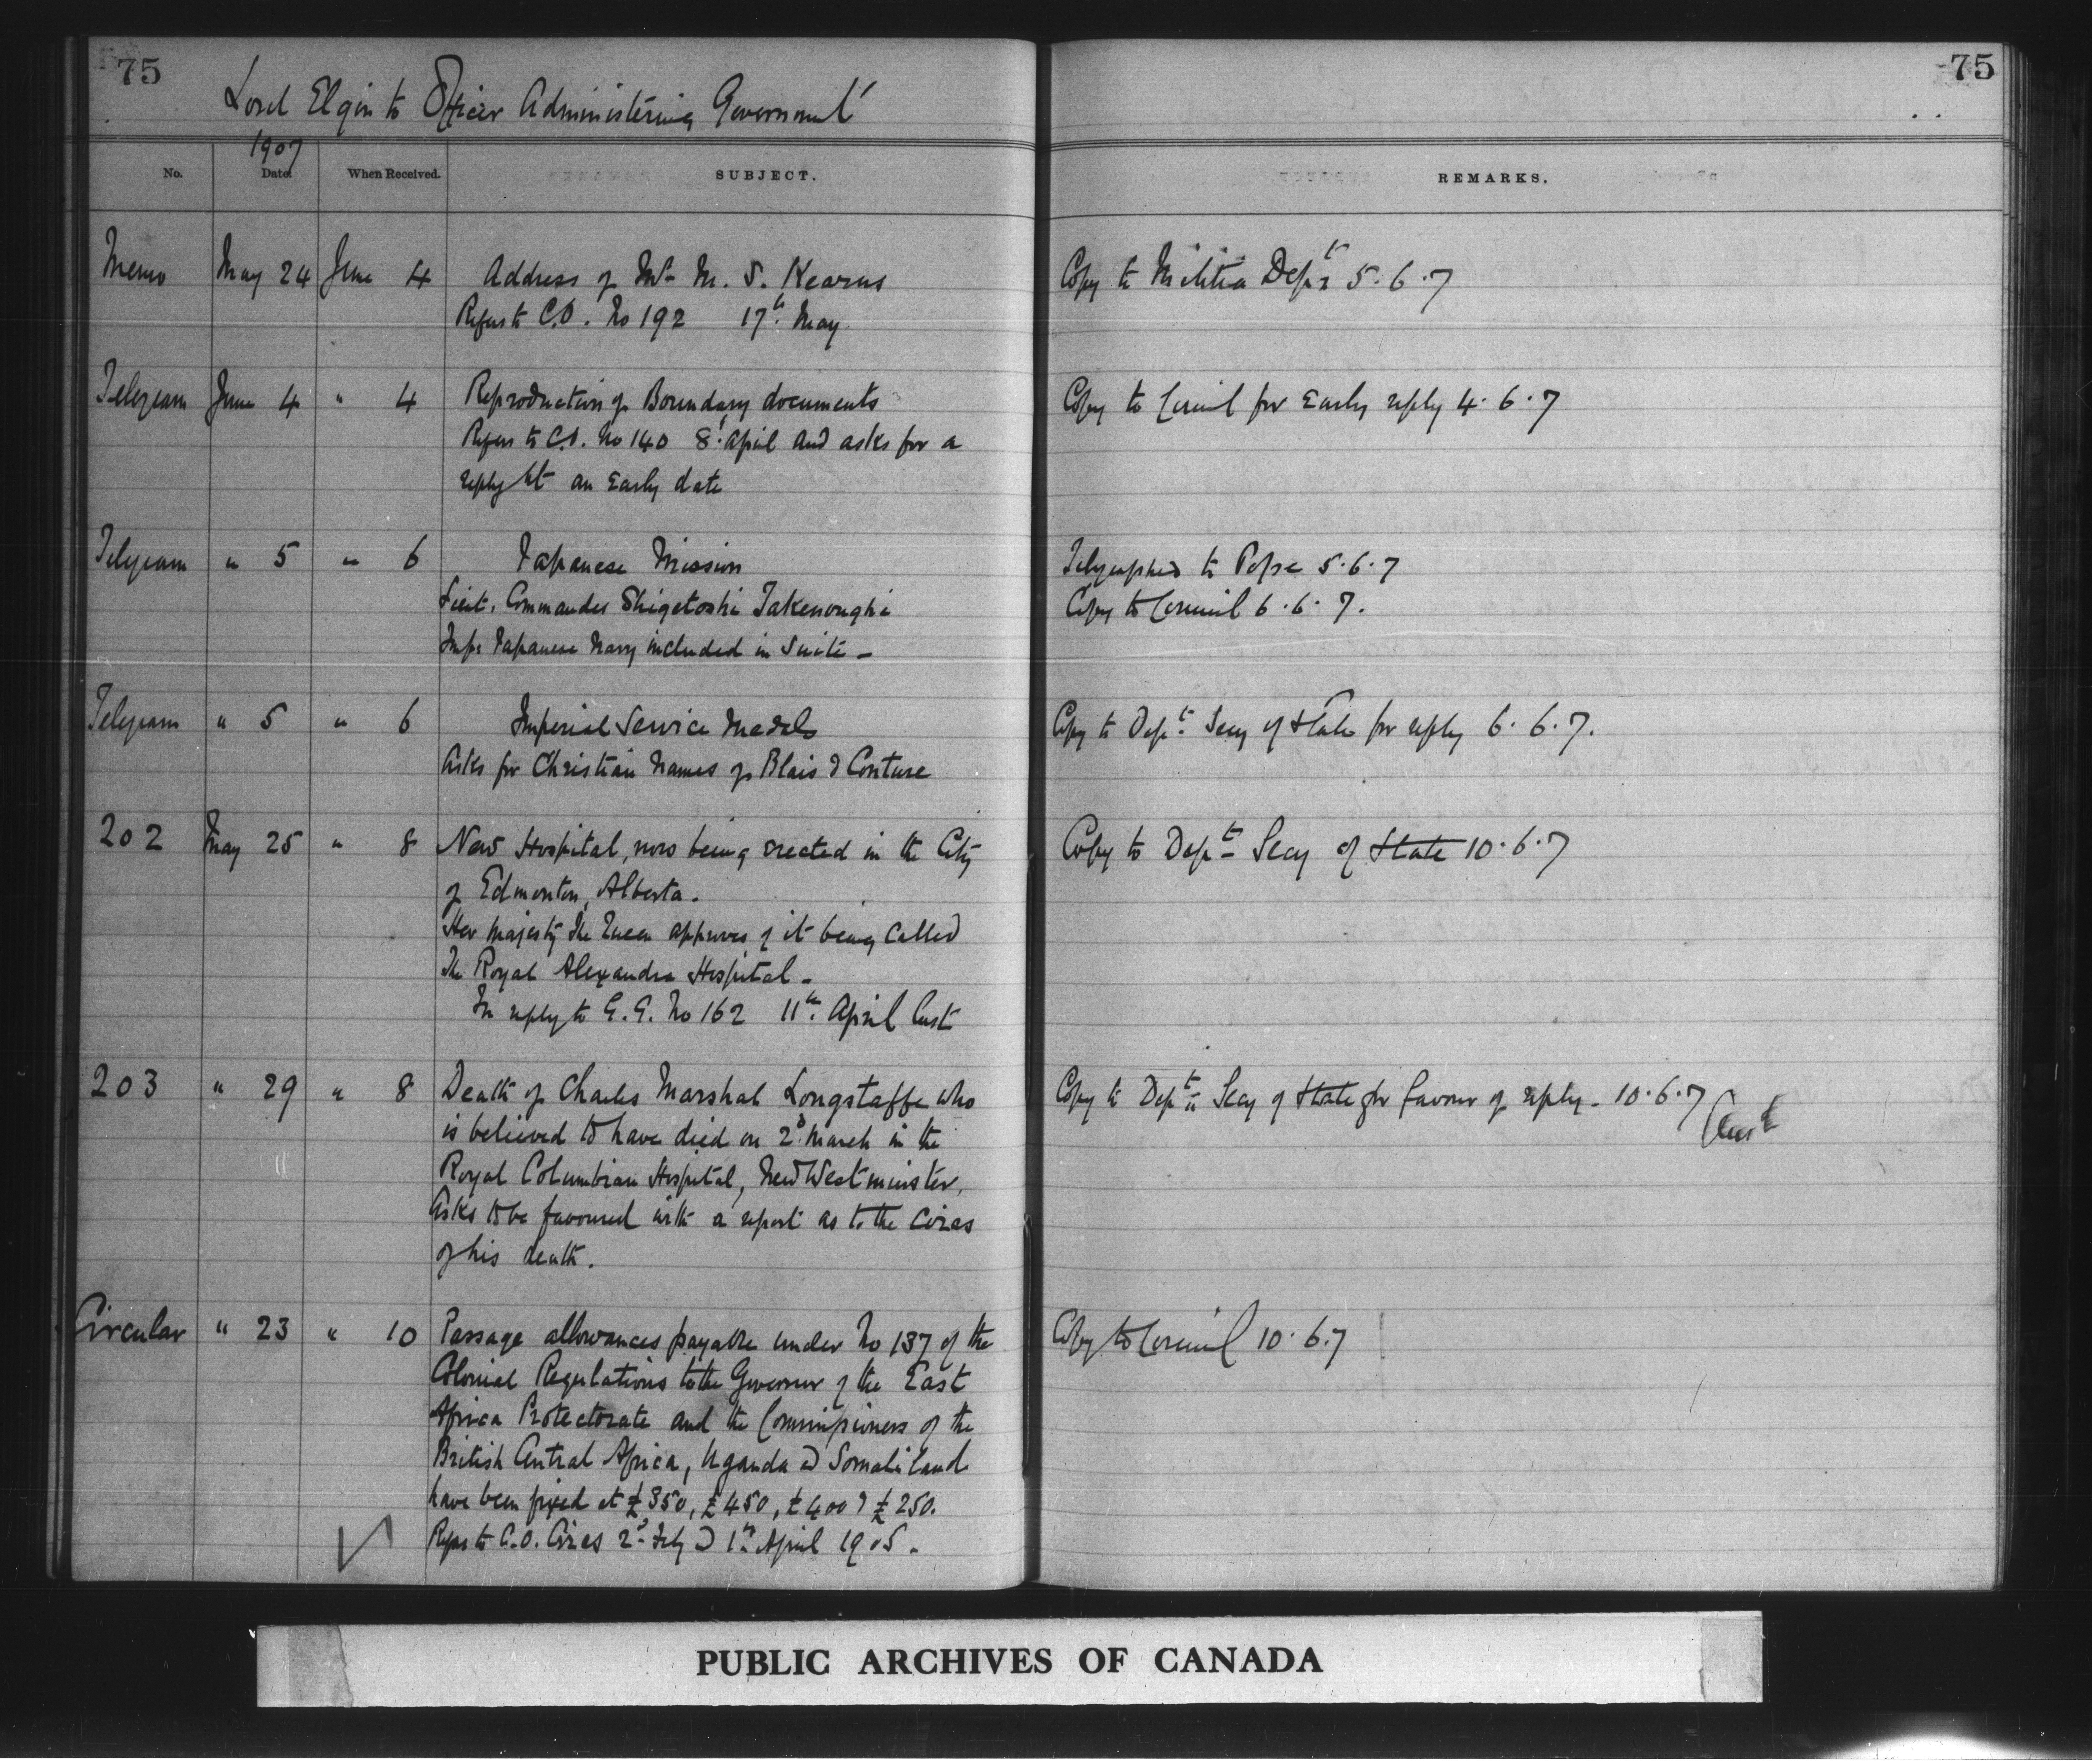 75
75
Lord Elgin to Officer Administering Government
1907
No. Date When Received. SUBJECT. REMARKS.
Memo May 24 June 4 Address of Mr M. S. Kearns Copy to Militia Dept 5.6.7
Refers to C.O. No 192 17th May
Telegram June 4 " 4 Reproduction of Boundary documents Copy to Council for Early reply 4.6.7
Refers to C.O. No 140 8 April and asks for a
reply at an Early date
Telegram " 5 " 6 Japanese Mission Telegraphed to Pope 5.6.7
Lieut. Commander Shigetoshi Takenoughi Copy to Council 6.6.7.
Impl Japanese Navy included in Suite -
Telegram " 5 " 6 Imperial Service Medals Copy to Dept Secy of State for reply 6.6.7.
Asks for Christian Names of Blais & Couture
202 May 25 " 8 New Hospital, now being erected in the City Copy to Dept Secy of State 10.6.7
of Edmonton, Alberta.
Her Majesty The Queen approves of it being called
The Royal Alexandra Hospital -
In reply to G.G. No 162 11th April last
203 " 29 " 8 Death of Charles Marshal Longstaffe who Copy to Dept Secy of State for favour of reply - 10.6.7
is believed to have died on 2d March in the
Royal Columbian Hospital, New Westminster.
Asks to be favoured with a report as to the circs
of his death.
Circular " 23 " 10 Passage allowances payable under No 137 of the Copy to Council 10.6.7
Colonial Regulations to the Governor of the East
Africa Protectorate and the Commissioners of the
British Central Africa, Uganda & Somaliland
have been fixed at £350, £450, £400 & £250.
Refers to C.O. Circs 2d Feby & 1st April 1905.
PUBLIC ARCHIVES OF CANADA